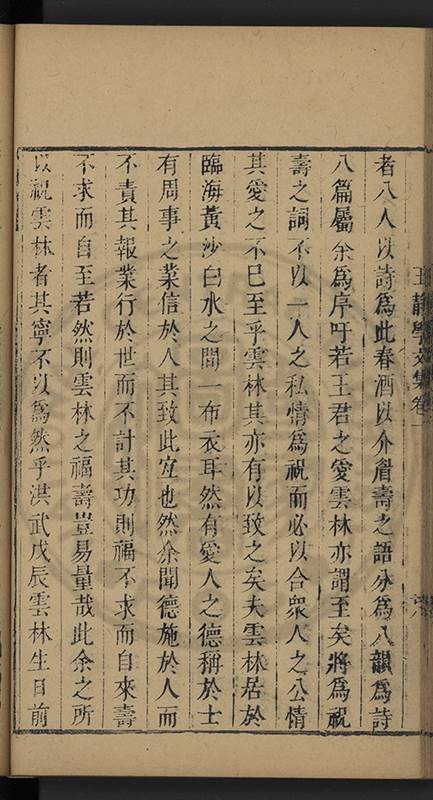 者八人以詩爲此春酒以介眉壽之語分爲八韻爲詩
八篇屬余爲序吁若王君之愛雲林亦謂至矣將爲祝
壽之詞不以一人之私情爲祝而必以合衆人之公情
其愛之不已至乎雲林其亦有以致之矣夫雲林居於
臨海黃沙白水之間一布衣耳然有愛人之德稱於士
有周事之業信於人其致此宜也然余聞德施於人而
不責其報業行於世而不計其功則福不求而自來壽
不求而自至若然則雲林之福壽豈易量哉此余之所
以祝雲林者其寧不以爲然乎洪武戊辰雲林生日前
王靜學文集卷一